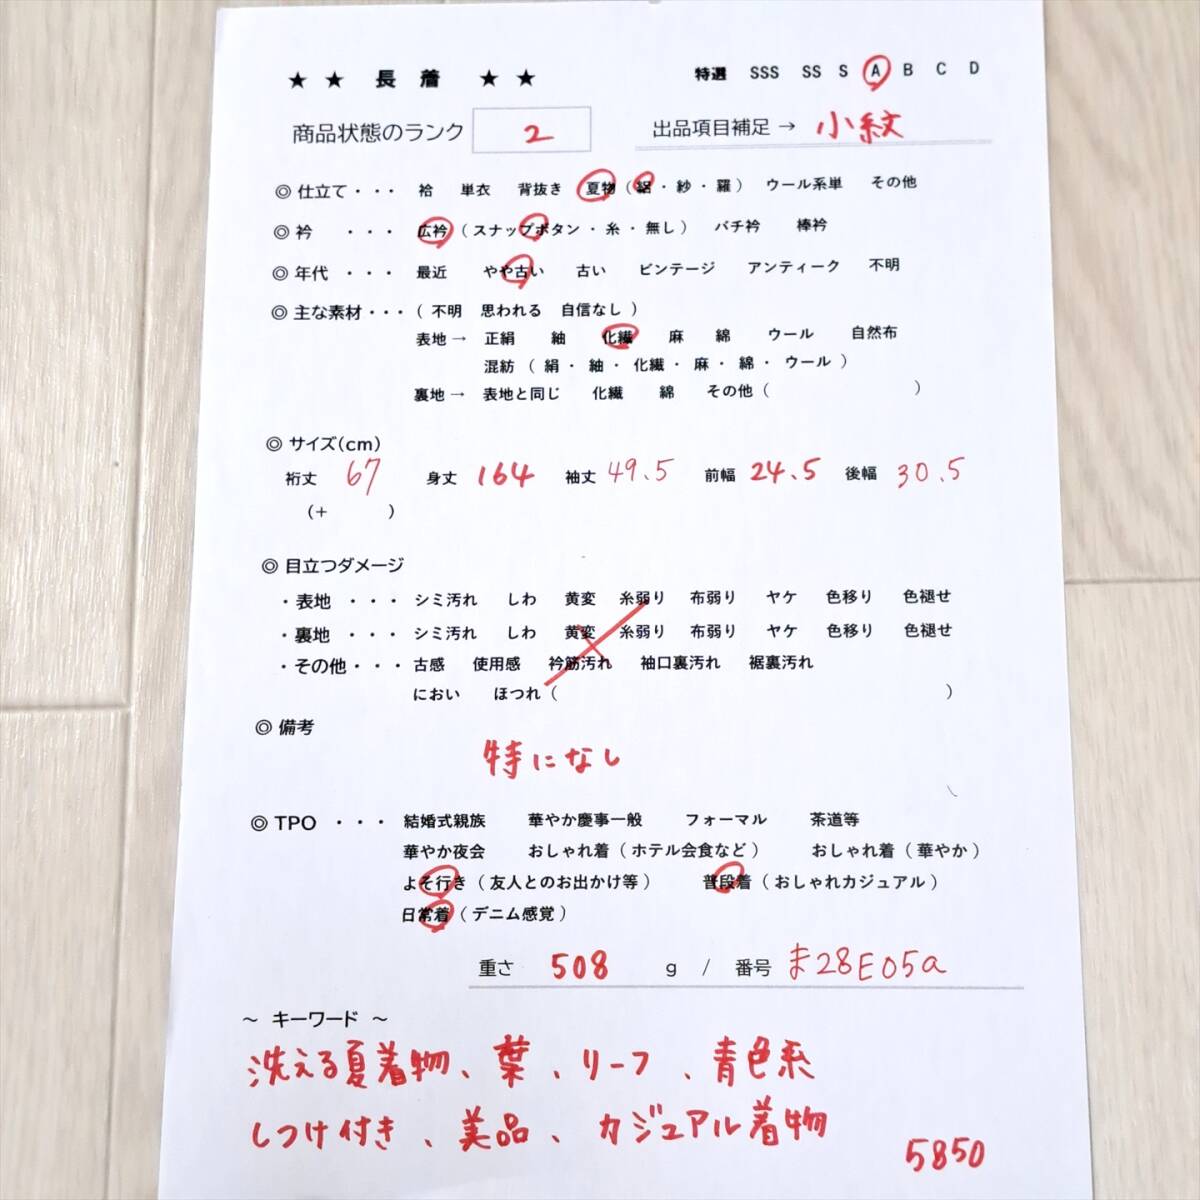 ★ ★ 長 着 ★ ★ 特選 SSS SS S A B C D
商品状態のランク 2 出品項目補足 → 小紋
◎ 仕立て・・・ 袷 単衣 背抜き 夏物 ( 絽 ・ 紗 ・ 羅 ) ウール系単 その他
◎ 衿 ・・・ 広衿 ( スナップボタン ・ 糸 ・ 無し ) バチ衿 棒衿
◎ 年代 ・・・ 最近 やや古い 古い ビンテージ アンティーク 不明
◎ 主な素材・・・ ( 不明 思われる 自信なし )
表地 → 正絹 紬 化繊 麻 綿 ウール 自然布
混紡 ( 絹 ・ 紬 ・ 化繊 ・ 麻 ・ 綿 ・ ウール )
裏地 → 表地と同じ 化繊 綿 その他 ( )
◎ サイズ(cm)
裄丈 67 身丈 164 袖丈 49.5 前幅 24.5 後幅 30.5
(+ )
◎ 目立つダメージ
・表地 ・・・ シミ汚れ しわ 黄変 糸弱り 布弱り ヤケ 色移り 色褪せ
・裏地 ・・・ シミ汚れ しわ 黄変 糸弱り 布弱り ヤケ 色移り 色褪せ
・その他・・・ 古感 使用感 衿筋汚れ 袖口裏汚れ 裾裏汚れ
におい ほつれ ( )
◎ 備考
特になし
◎ TPO ・・・ 結婚式親族 華やか慶事一般 フォーマル 茶道等
華やか夜会 おしゃれ着 ( ホテル会食など ) おしゃれ着 ( 華やか )
よそ行き ( 友人とのお出かけ等 ) 普段着 ( おしゃれカジュアル )
日常着 ( デニム感覚 )
重さ 508 g / 番号 ま28E05a
～ キーワード ～
洗える夏着物、葉、リーフ、青色系
しつけ付き、美品、カジュアル着物
5850